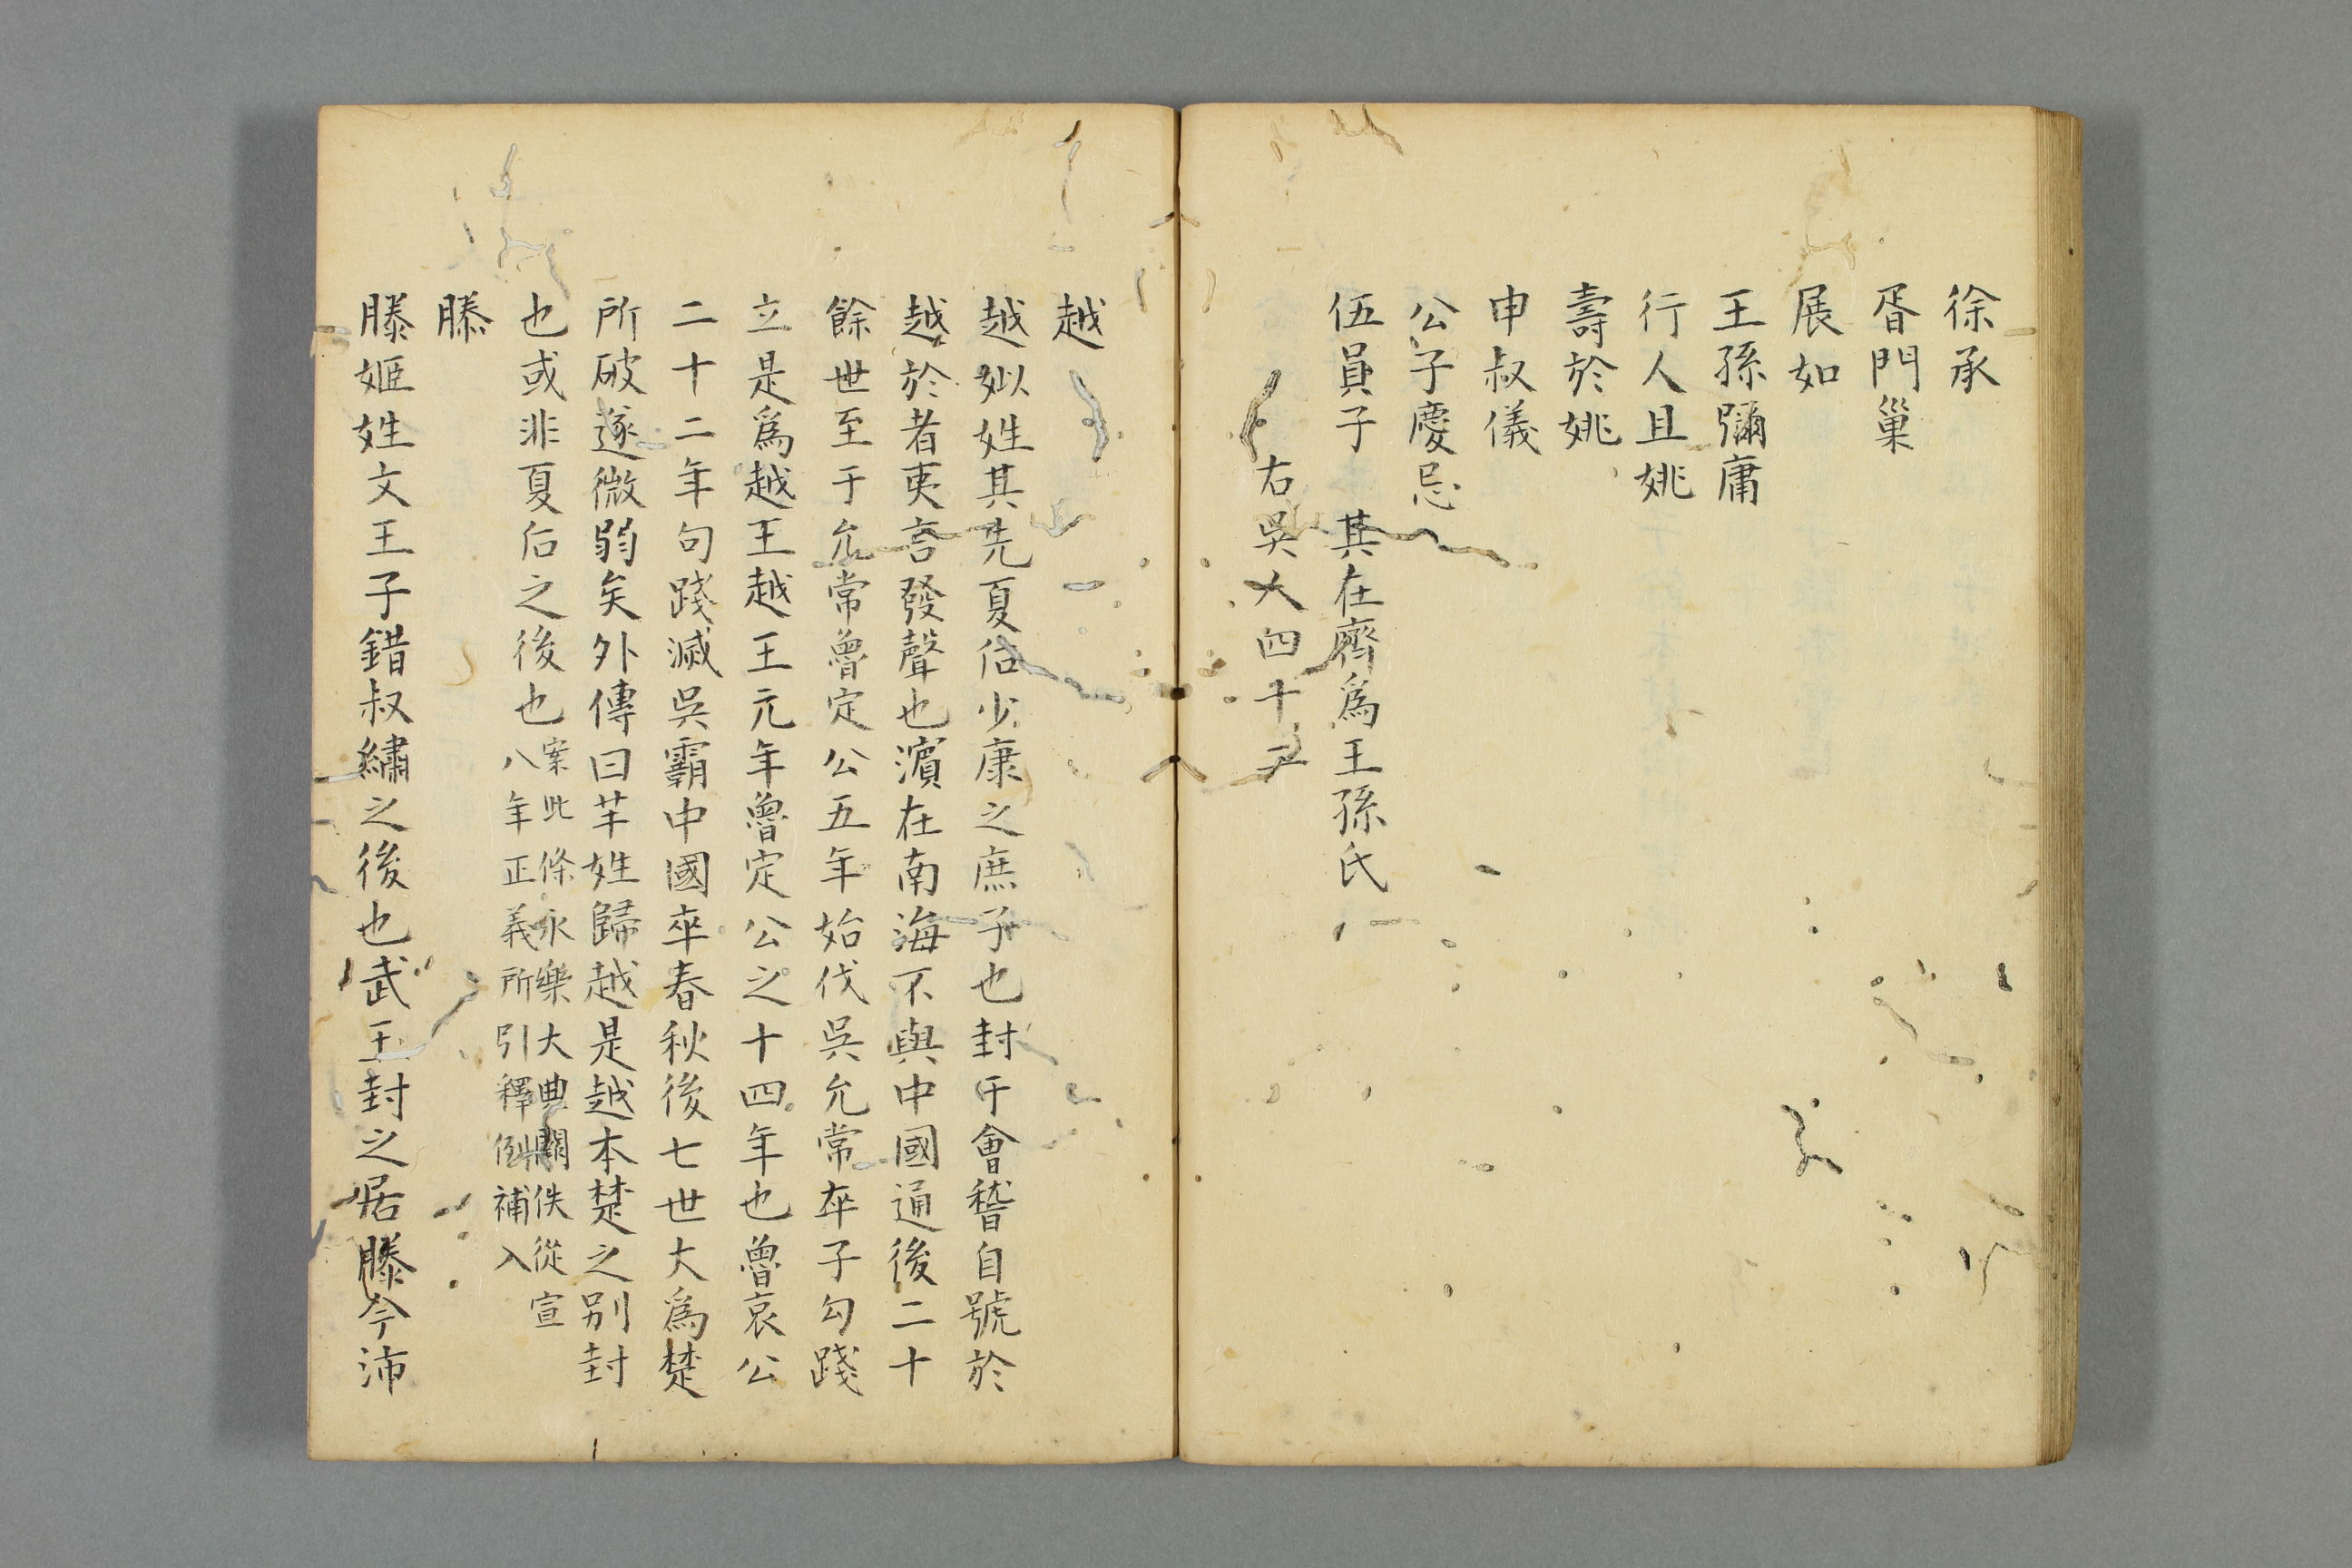 徐承
胥門巢
展如
王孫彌庸
行人且姚
壽於姚
申叔儀
公子慶忌
伍員子 其在齊爲王孫氏
右吳人四十
越
越姒姓其先夏后少康之庶子也封于會稽自號於
越於者夷言發聲也濵在南海不與中國通後二十
餘世至于允常魯定公五年始伐吳允常卒子勾踐
立是爲越王越王元年魯定公之十四年也魯哀公
二十二年句踐滅吳霸中國卒春秋後七世大爲楚
所破遂微弱矣外傳曰芊姓歸越是越本楚之别封
也或非夏后之後也案此條永樂大典闕佚從宣
八年正義所引釋例補入
滕
滕姬姓文王子錯叔繡之後也武王封之居滕今沛